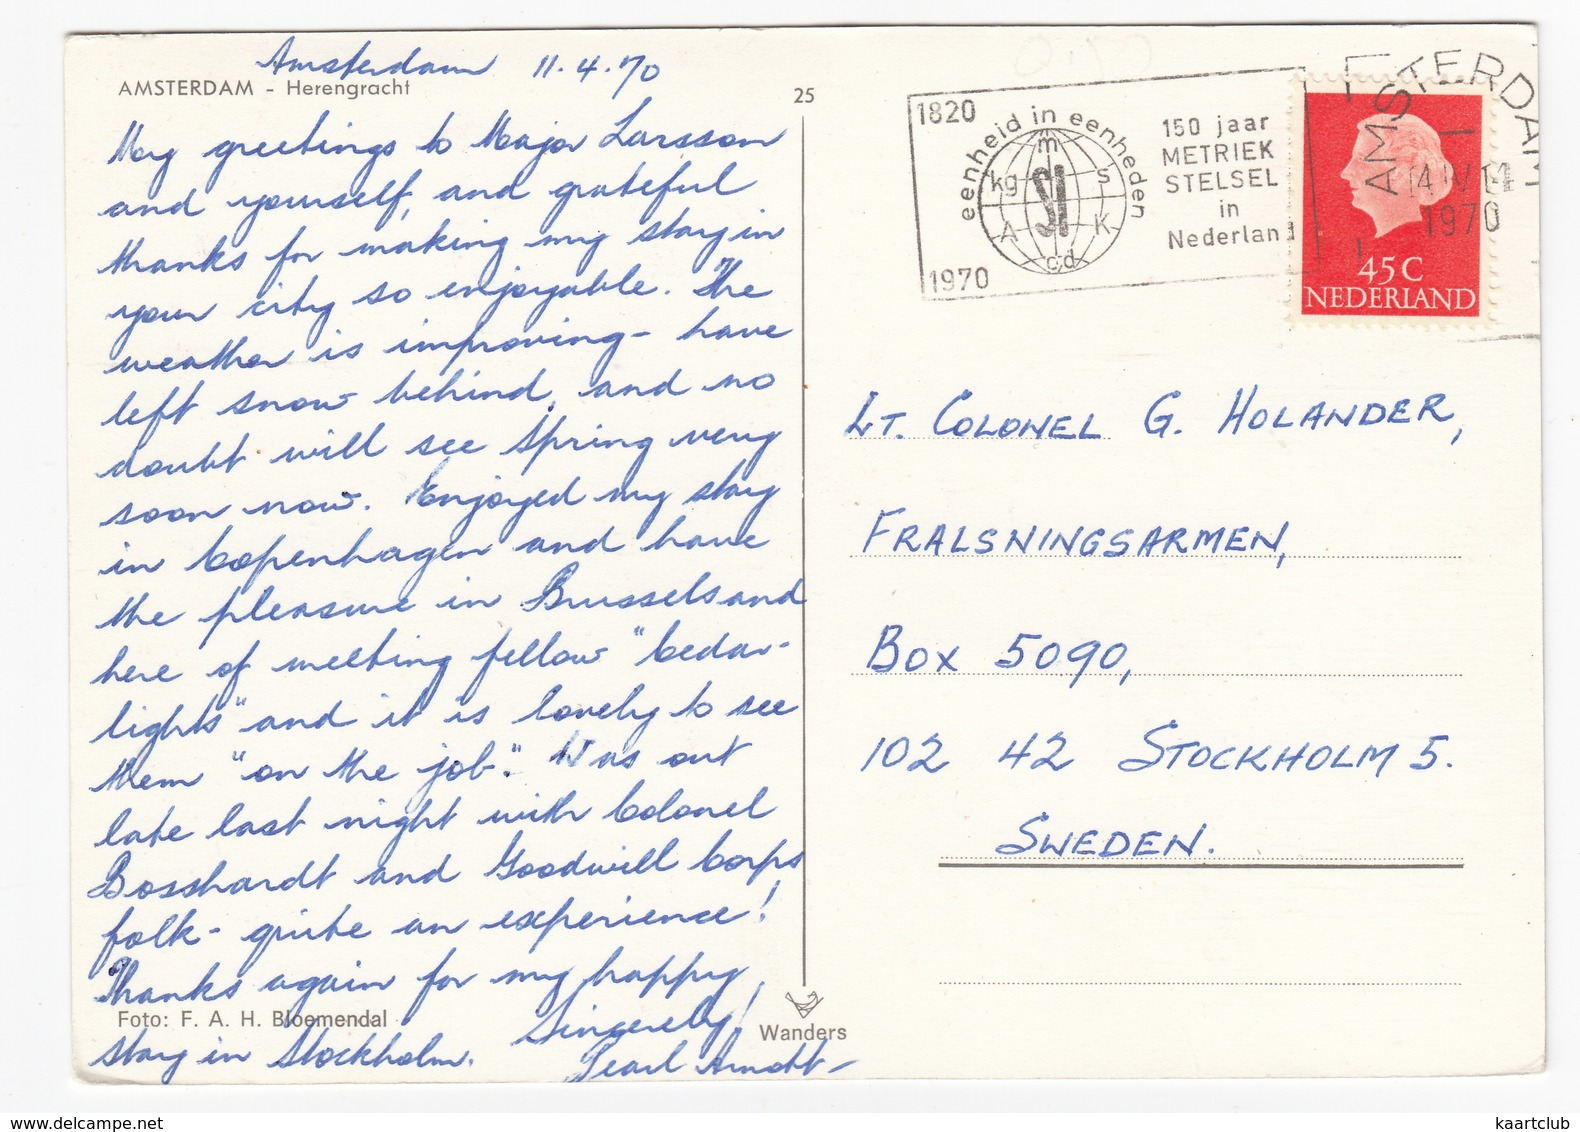 Amsterdam 11.4.70
AMSTERDAM - Herengracht
25
My greetings to Major Larsson
and yourself, and grateful
thanks for making my stay in
your city so enjoyable. The
weather is improving - have
left snow behind, and no
doubt will see Spring very
soon now. Enjoyed my stay
in Copenhagen and have
the pleasure in Brussels and
here of meeting fellow "cedar-
lights" and it is lovely to see
them "on the job". Was out
late last night with Colonel
Bosshardt and Goodwill Corps
folk - quite an experience!
Thanks again for my happy
stay in Stockholm.
Sincerely,
Pearl Arndt -
Foto: F. A. H. Bloemendal
Wanders
1820
1970
eenheid in eenheden
m
kg
s
SI
A
K
cd
150 jaar
METRIEK
STELSEL
in
Nederland
AMSTERDAM
14 IV 14
1970
45C
NEDERLAND
LT. COLONEL G. HOLANDER,
FRALSNINGSARMEN,
BOX 5090,
102 42 STOCKHOLM 5.
SWEDEN.
kaartclub